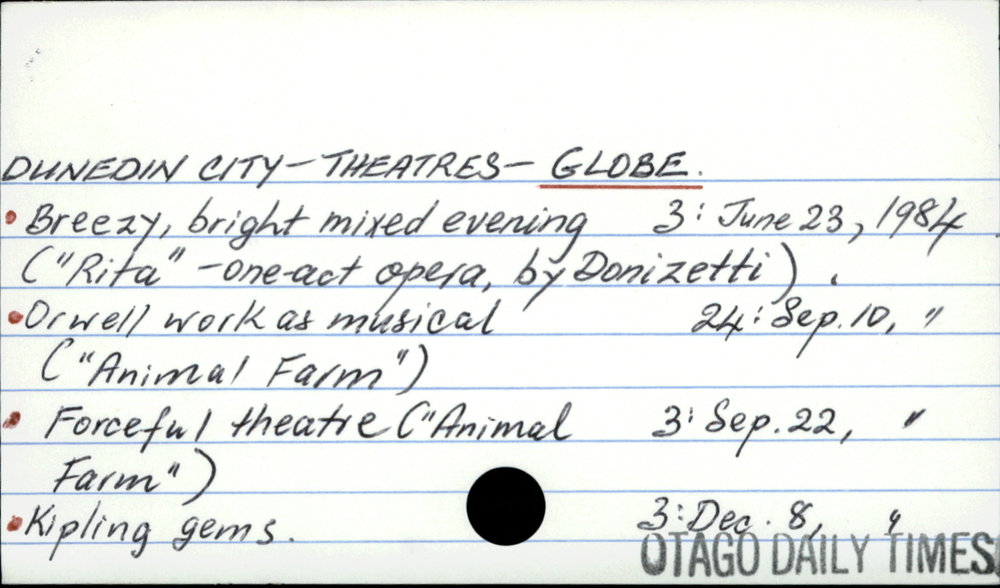 DUNEDIN CITY — THEATRES — GLOBE.
• Breezy, bright mixed evening 3: June 23, 1984
("Rita" - one-act opera, by Donizetti).
• Orwell work as musical 24: Sep. 10, "
("Animal Farm")
• Forceful theatre ("Animal 3: Sep. 22, "
Farm")
• Kipling gems. 3: Dec. 8, "
OTAGO DAILY TIMES